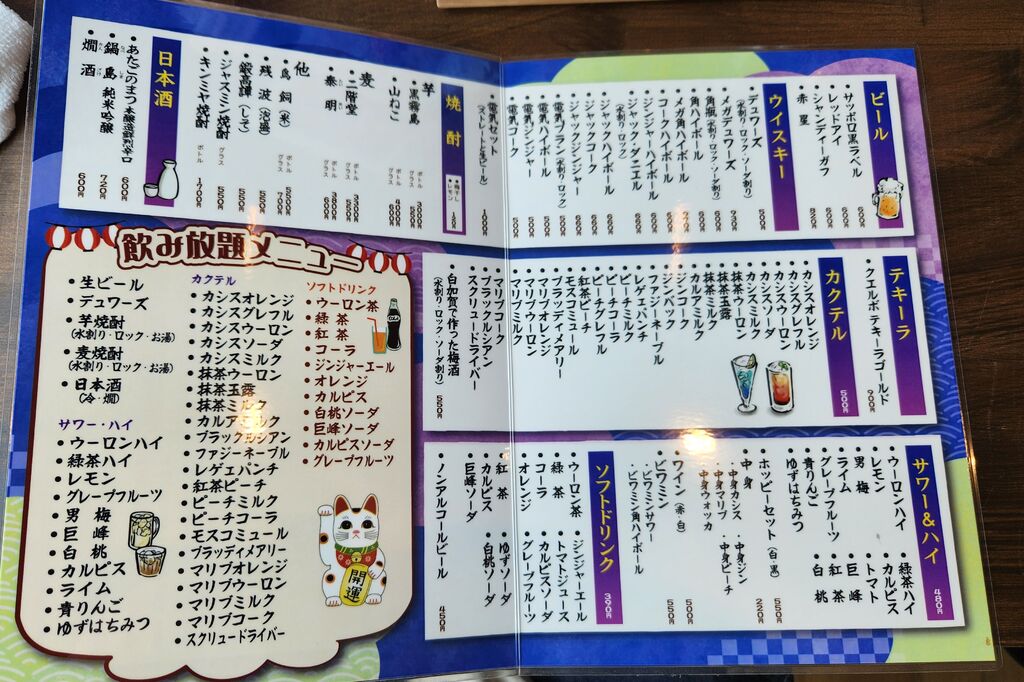 ビール
・サッポロ黒ラベル
・レッドアイ
・シャンディーガフ
・赤星
ウイスキー
・デュワーズ
(水割り・ロック・ソーダ割り)
・メガデュワーズ
・角瓶
・角ハイボール
・メガ角ハイボール
・コークハイボール
・ジンジャーハイボール
・ジャックダニエル
・ジャックハイボール
・ジャックコーク
・ジャックジンジャー
・電気ブラン
・電気ハイボール
・電気ジンジャー
・電気コーク
・電気セット
(ストレートと生ビール)
焼酎
・梅干し
・レモン
芋
・黒霧島
・山ねこ
麦
・二階堂
・泰明
他
・鳥飼(米)
・残波(泡盛)
・鍛高譚(しそ)
・ジャスミン焼酎
・キンミヤ焼酎
日本酒
・あたごのまつ 本醸造鮮烈辛口 600円
・鍋島 純米吟醸 720円
・燗酒 600円
テキーラ
・クエルボテキーラゴールド 900円
カクテル 500円
・カシスオレンジ
・カシスグレフル
・カシスウーロン
・カシスソーダ
・カシスミルク
・抹茶ウーロン
・抹茶玉露
・抹茶ミルク
・ジンコーク
・ジンバック
・ファジーネーブル
・レゲエパンチ
・ピーチミルク
・ピーチコーラ
・ピーチグレフル
・紅茶ピーチ
・モスコミュール
・ブラッディメアリー
・マリブオレンジ
・マリブウーロン
・マリブミルク
・マリブコーク
・ブラックルシアン
・スクリュードライバー
・白加賀で作った梅酒 550円
(水割り・ロック・ソーダ割り)
サワー&ハイ 480円
・ウーロンハイ
・緑茶ハイ
・レモン
・カルピス
・男梅
・トマト
・ライム
・巨峰
・グレープフルーツ
・紅茶
・青りんご
・白桃
・ゆずはちみつ
・ホッピーセット(白・黒) 550円
・中身 220円
・中身カシス
・中身ジン
・中身マリブ
・中身ピーチ
・中身ウォッカ
・ワイン(赤・白) 500円
・ビワミン 550円
・ビワミンサワー
・ビワミン角ハイボール
ソフトドリンク 390円
・ウーロン茶
・ジンジャーエール
・緑茶
・トマトジュース
・コーラ
・カルピスソーダ
・オレンジ
・グレープフルーツ
・紅茶
・ゆずソーダ
・カルピス
・白桃ソーダ
・巨峰ソーダ
・ノンアルコールビール 450円
飲み放題メニュー
・生ビール
・デュワーズ
・芋焼酎
(水割り・ロック・お湯)
・麦焼酎
(水割り・ロック・お湯)
・日本酒
(冷・燗)
サワー・ハイ
・ウーロンハイ
・緑茶ハイ
・レモン
・グレープフルーツ
・男梅
・巨峰
・白桃
・カルピス
・ライム
・青りんご
・ゆずはちみつ
カクテル
・カシスオレンジ
・カシスグレフル
・カシスウーロン
・カシスソーダ
・カシスミルク
・抹茶ウーロン
・抹茶玉露
・抹茶ミルク
・カルアミルク
・ブラックルシアン
・ファジーネーブル
・レゲェパンチ
・紅茶ピーチ
・ピーチミルク
・ピーチコーラ
・モスコミュール
・ブラッディメアリー
・マリブオレンジ
・マリブウーロン
・マリブミルク
・マリブコーク
・スクリュードライバー
ソフトドリンク
・ウーロン茶
・緑茶
・紅茶
・コーラ
・ジンジャーエール
・オレンジ
・カルピス
・白桃ソーダ
・巨峰ソーダ
・カルピスソーダ
・グレープフルーツ
開運